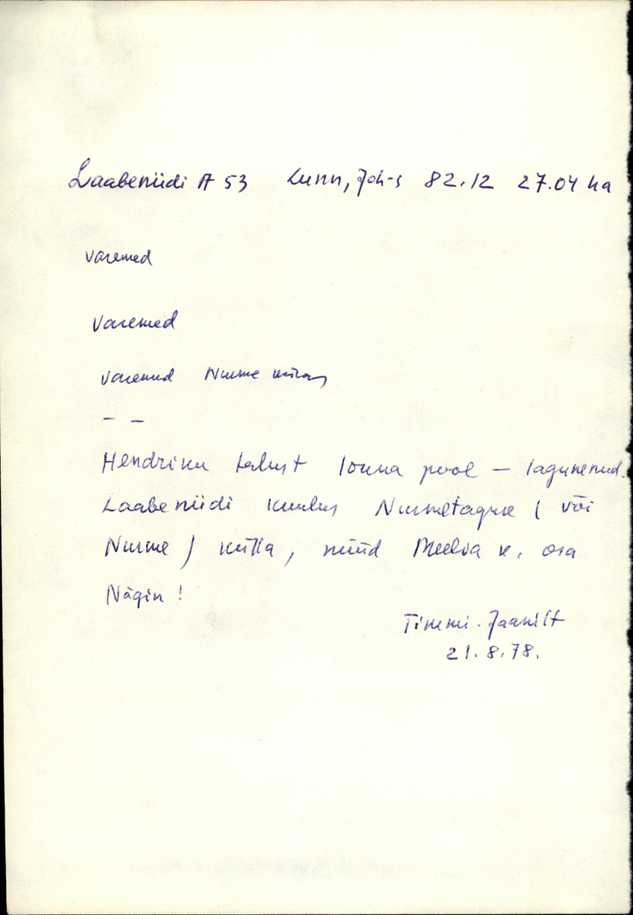 Laabeniidi A 53 Lunn, Joh-s 82.12 27.04 ha
varemed
varemed
varemed Nurme külas
– –
Hendriku talust lõuna pool – lagunenud.
Laabeniidi kuulus Nurmetaguse (või
Nurme) külla, nüüd Meelva k. osa
Nägin!
Timmi Jaanilt
21.8.78.